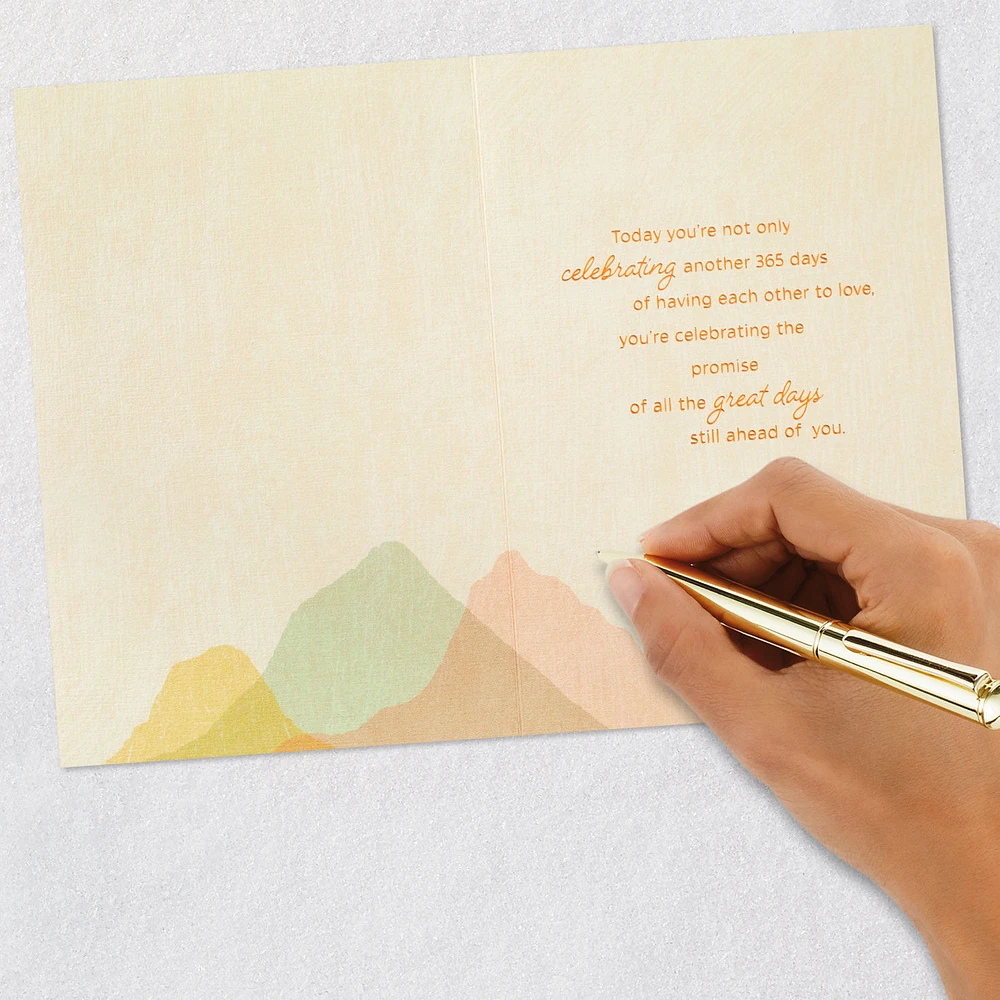 Today you're not only
celebrating another 365 days
of having each other to love,
you're celebrating the
promise
of all the great days
still ahead of you.